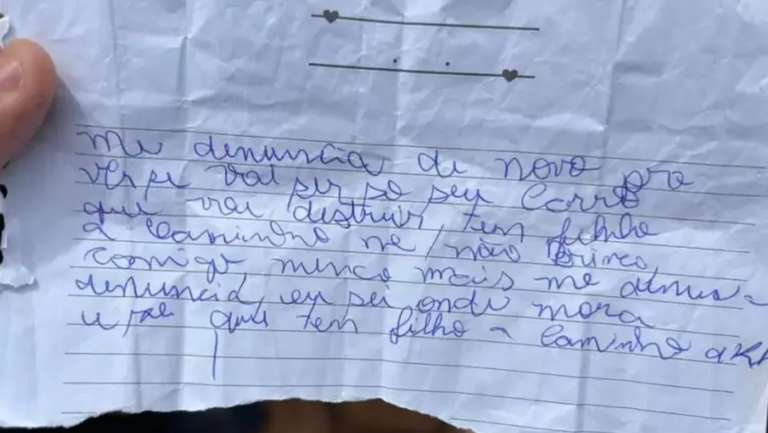 me denuncia de novo pra
ver se vai ser só seu carro
que vou distruir, tem filho
a caminho né, não brinca
comigo, nunca mais me denun-
cia, eu sei onde mora
e sei que tem filho a caminho